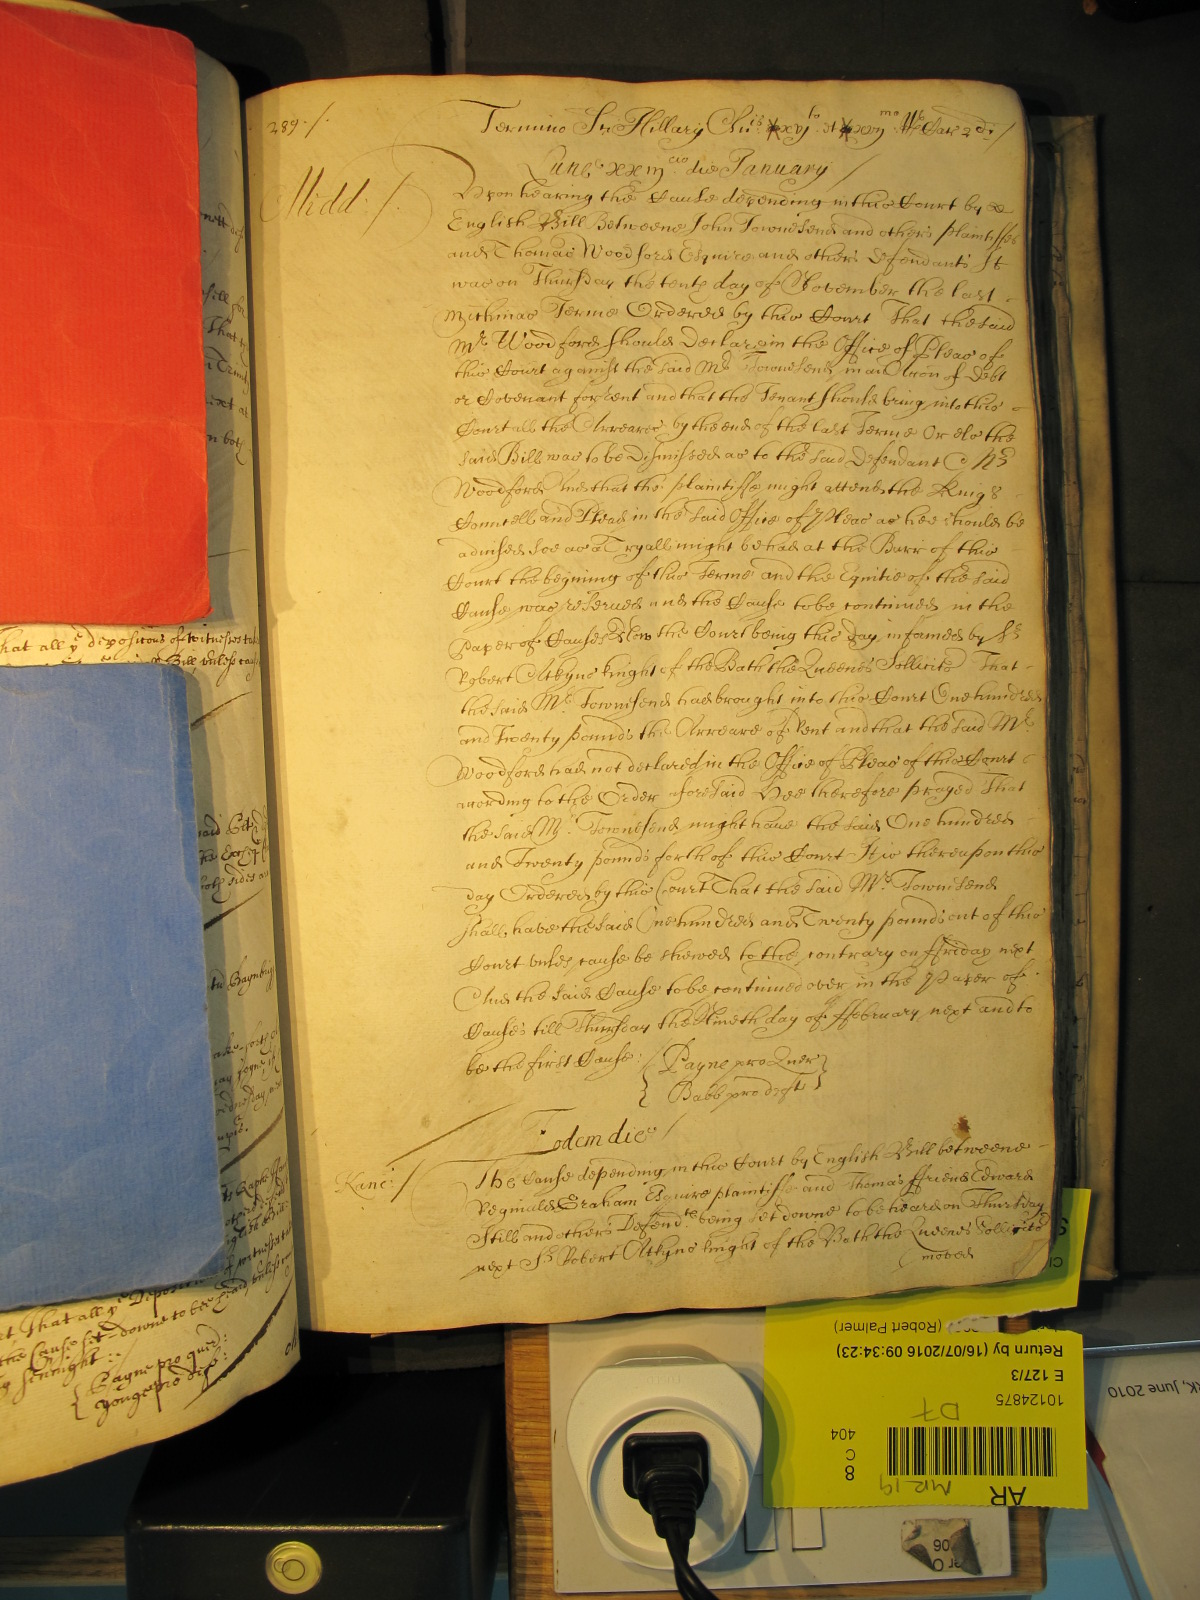 289 /
Termino Sti Hillary Anis xxvj to et xxvij mo R Car 2 di /
Lune xxiij cio die January /
Midd: /
Upon hearing the Cause depending in this Court by
English Bill Betweene John Townesend and others plaintiffes
and Thomas Woodford Esquire and others Defendants It
was on Thursday the tenth day of November the last
Michmas Terme Ordered by this Court That the said
Mr. Woodford should Declare in the Office of Pleas of
this Court against the said Mr. Townesend in an Accon of Debt
or Covenant for rent and that the Tenant should bring into this
Court all the Arreares by the end of the last Terme Or els the
said Bill was to be Dismissed as to the said Defendant
Woodford And that the plaintiffe might attend the Kings
Councell and Plead in the said Office of Pleas as hee should be
advised soe as a Tryall might be had at the Barr of this
Court the begining of this Terme and the Equitie of the said
Cause was reserved and the Cause to be continued in the
Paper of Causes Now the Court being this day informed by Sr
Robert Atkyns knight of the Bath the Queenes Sollicitor That
the said Mr. Townsend had brought into this Court One hundred
and Twenty pounds the Arreare of Rent and that the said Mr.
Woodford had not declared in the Office of Pleas of this Court
according to the Order aforesaid Hee therefore prayed That
the said Mr. Townsend might have the said One hundred
and Twenty pounds forth of this Court It is thereupon this
day Ordered by this Court That the said Mr. Townsend
shall have the said One hundred and Twenty pounds out of this
Court unles cause be shewed to the contrary on ffriday next
And the said Cause to be continued over in the Paper of
Causes till Thursday the Nineth day of ffebruary next and to
be the first Cause:
Payne pro Quer
Babb pro deft
Eodem die /
Kanc: /
The Cause depending in this Court by English Bill betweene
Reginald Graham Esquire plaintiffe and Thomas ffriend Edward
Still and others Defend ts being set downe to be heard on Thursday
next Sr. Robert Atkyns knight of the Bath the Queenes Sollicitor
moved
That all ye deposicons of witnesses
Bill unless
That all ye
the Cause set downe to bee heard
Payne pro quer:
Yonge pro def:
(Robert Palmer)
Return by (16/07/2016 09:34:23)
E 127/3
10124875
D7
404
C
8
MR 19
AR
RK, June 2010